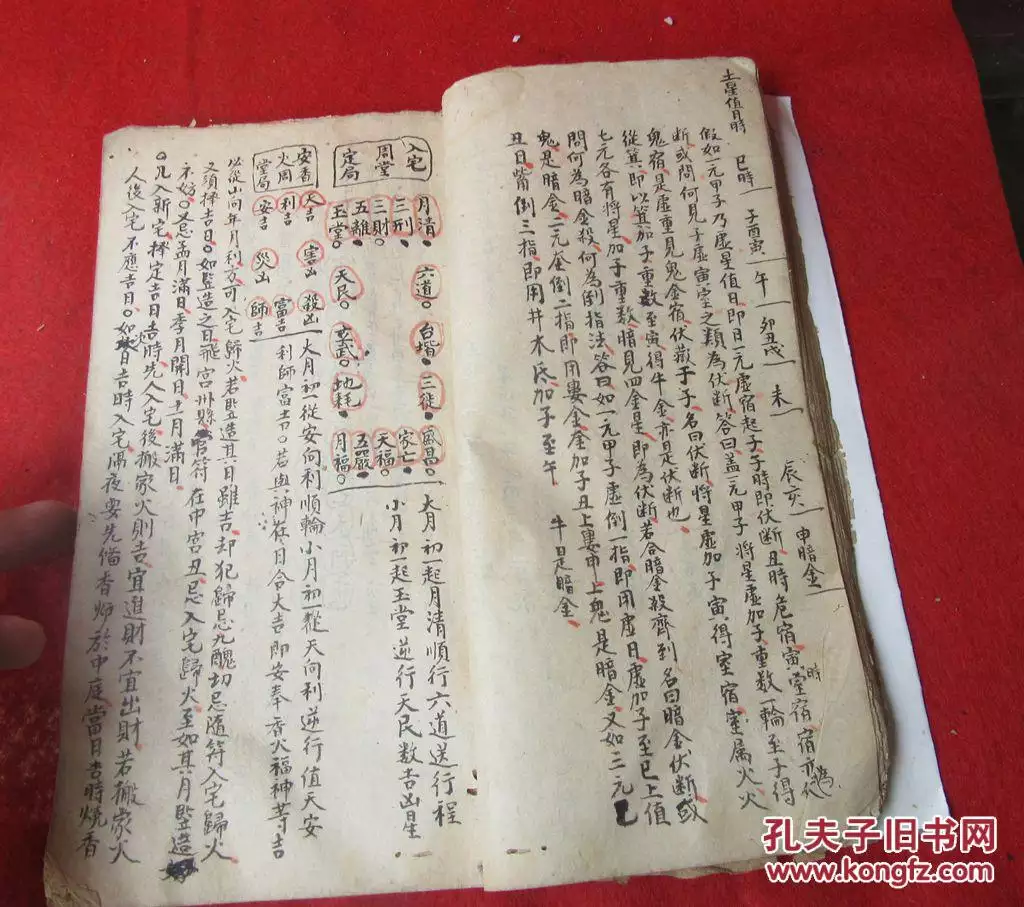 土星值日時 巳時 子酉寅 午 卯丑戌 未 辰亥 申暗金
假如一元甲子乃虛星值日即日一元虛宿起子子時即伏断丑時危宿寅時室宿
断或問何見子虛寅室之類為伏断答曰盖一元甲子將星虛加子重数一輪至子得
鬼宿是虛重見鬼金宿伏藏于子名曰伏断將星虛加子寅得室宿室属火火
從箕即以箕加子重数至寅得牛金亦是伏断也
七元各有將星加子重数暗見四金星即為伏断若合暗金殺齊到名曰暗金伏断或
問何為暗金殺何為倒指法答曰如一元甲子虛倒一指即用虛日虛加子至巳上值
鬼是暗金二元奎倒二指即用婁金奎加子丑上婁申上鬼是暗金又如三元
丑日觜倒三指即用井木底加子至午 牛是暗金
入宅周堂定局
月清 六道 台堦 三徙 盛昌
三刑 家亡
三財 天福
五離 玄武 地耗 五嚴
玉堂 天民 月福
大月初一起月清順行六道送行程
小月初一起玉堂逆行天民数吉凶星
安香火周堂局
天吉 害凶 殺凶
利吉 富吉
安吉 災凶 師吉
大月初一從安向利順輪小月初一從天向利逆行值天安
利師富吉〇若與神在日合大吉即安奉香火福神等吉
必從山向年月利方可入宅歸火若竪造其日雖吉却犯歸忌九醜切忌隨符入宅歸火
又須擇吉日〇如竪造之日飛宮州縣官符在中宮丑忌入宅歸火至如其月竪造
不妨〇又忌孟月滿日季月開日十一月滿日
〇凡入新宅擇定吉日吉時先入入宅後搬家火則吉宜進財不宜出財若搬家火
人後入宅不應吉日〇如日吉時入宅隔夜要先備香炉於中庭當日吉時燒香
孔夫子旧书网
www.kongfz.com